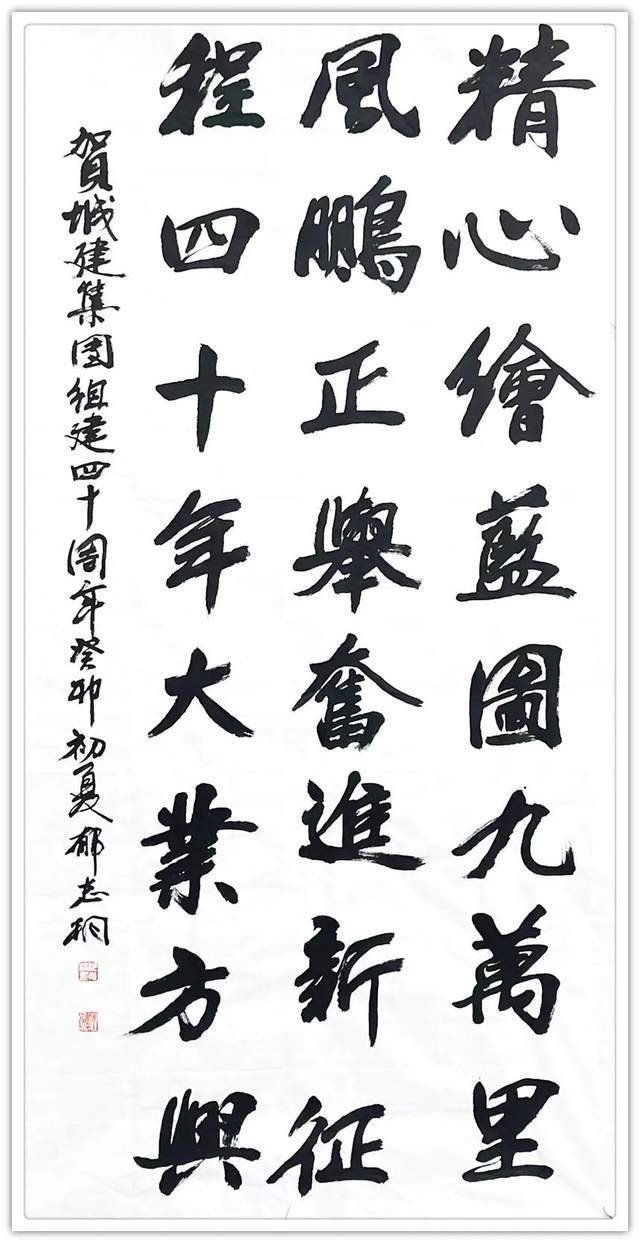 精心繪藍圖九萬里
風鵬正舉奮進新征
程四十年大業方興
賀城建集团組建四十周年癸卯初夏郁志桐